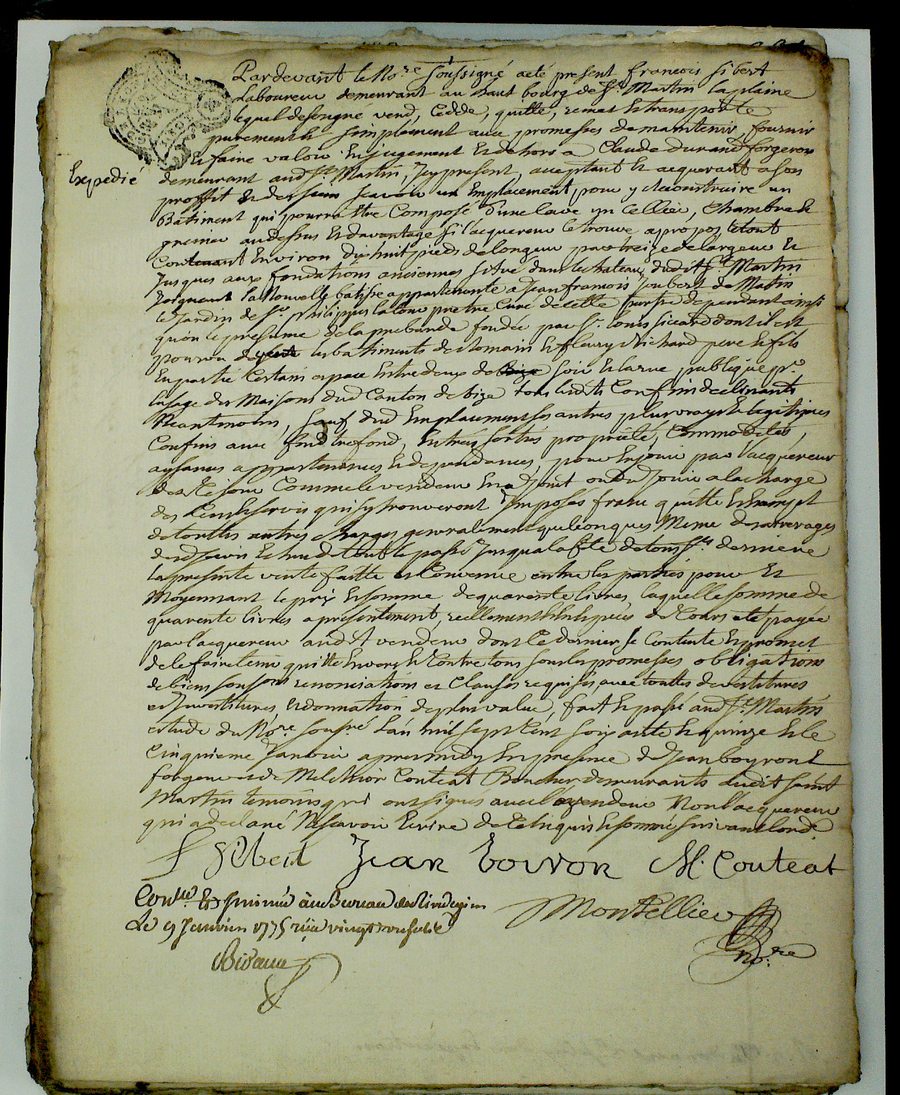 Pardevant le No.re soussigné a été present francois sibert
Laboureur demeurant au haut bourg de St Martin la plaine
lequel de son gré vend, cedde, quitte, remet et transporte
purement et simplement avec promesses de maintenir, fournir
et faire valoir en jugement et dehors a Claude durand forgeron
Expedié
demeurant aud St Martin, icy present, acceptant et acquerant a son
proffit et des siens scavoir un Emplacement pour y reconstruire un
Bâtiment qui pourra être Composé d'une Cave un Cellier, Chambre et
grenier au dessus et davantage si l'acquereur le trouve a propos le tout
Contenant Environ dix huit pieds de longeur par treize de largeur et
jusques aux fondations anciennes situé dans le chateau dudit St Martin
joignant la Nouvelle batisse appartenante a Jean francois joubert de Matin
le jardin de Sr philippes pretre Curé de Cellieu dependant ainsi
qu'on le presume de la prebende fondée par Sr louis sicard dont il est
pourvu de les bâtiments de Romain et fleury Richard pere et fils
En partie Certain espace Entre deux de soir et la rue publique pr
l'usage des Maisons dud Canton de bize tous lesdits Confins declinants
Neantmoins, sauf dud Emplacement ses autres plus vrays et legitimes
Confins avec fond trefond, Entrées sorties proprieté, Commodités,
aysances appartenances et dependances, pour En jouir par l'acquereur
des Ce jour Comme le vendeur En a joui ou du jouir a la charge
des Cens et servis qui s'y trouveront imposés franc quitte et Exempt
de touttes autres charges generalement quelconques Meme des arrerages
desd servis et du tout le passé jusqu'a la fête de tous Sts derniere
la presente vente faitte et Convenue entre les parties pour et
Moyennant le prix et somme de quarente livres laquelle somme de
quarente livres a presentement, reellement et En Espèces de Cours été payée
par l'acquereur aud vendeur dont Ce dernier se Contente et promet
de le faire tenir quitte Envers et Contre tous sous les promesses obligations
de biens soumons renonciations et Clauses requises avec touttes devestitures
et Investitures et donnation de plus value, fait et passé aud St Martin
etude du No.re sousné L'an mil sept Cent soixante et quinze et le
Cinquieme Janvier apres midy En presence de Jean boyron
forgeur et de Melchior Couteat Boucher demeurants audit saint
Martin temoins qui ont signés avec le vendeur Non l'acquereur
qui a declaré Ne scavoir Ecrire de Ce Enquis et sommés suivant l'ord.e
f sibert Jean boiron M. Couteat
Con.lle Et Insinué au Bureau de Rivedegier
Le 9 Janvier 1775 reçu vingt
Montellier
no.re